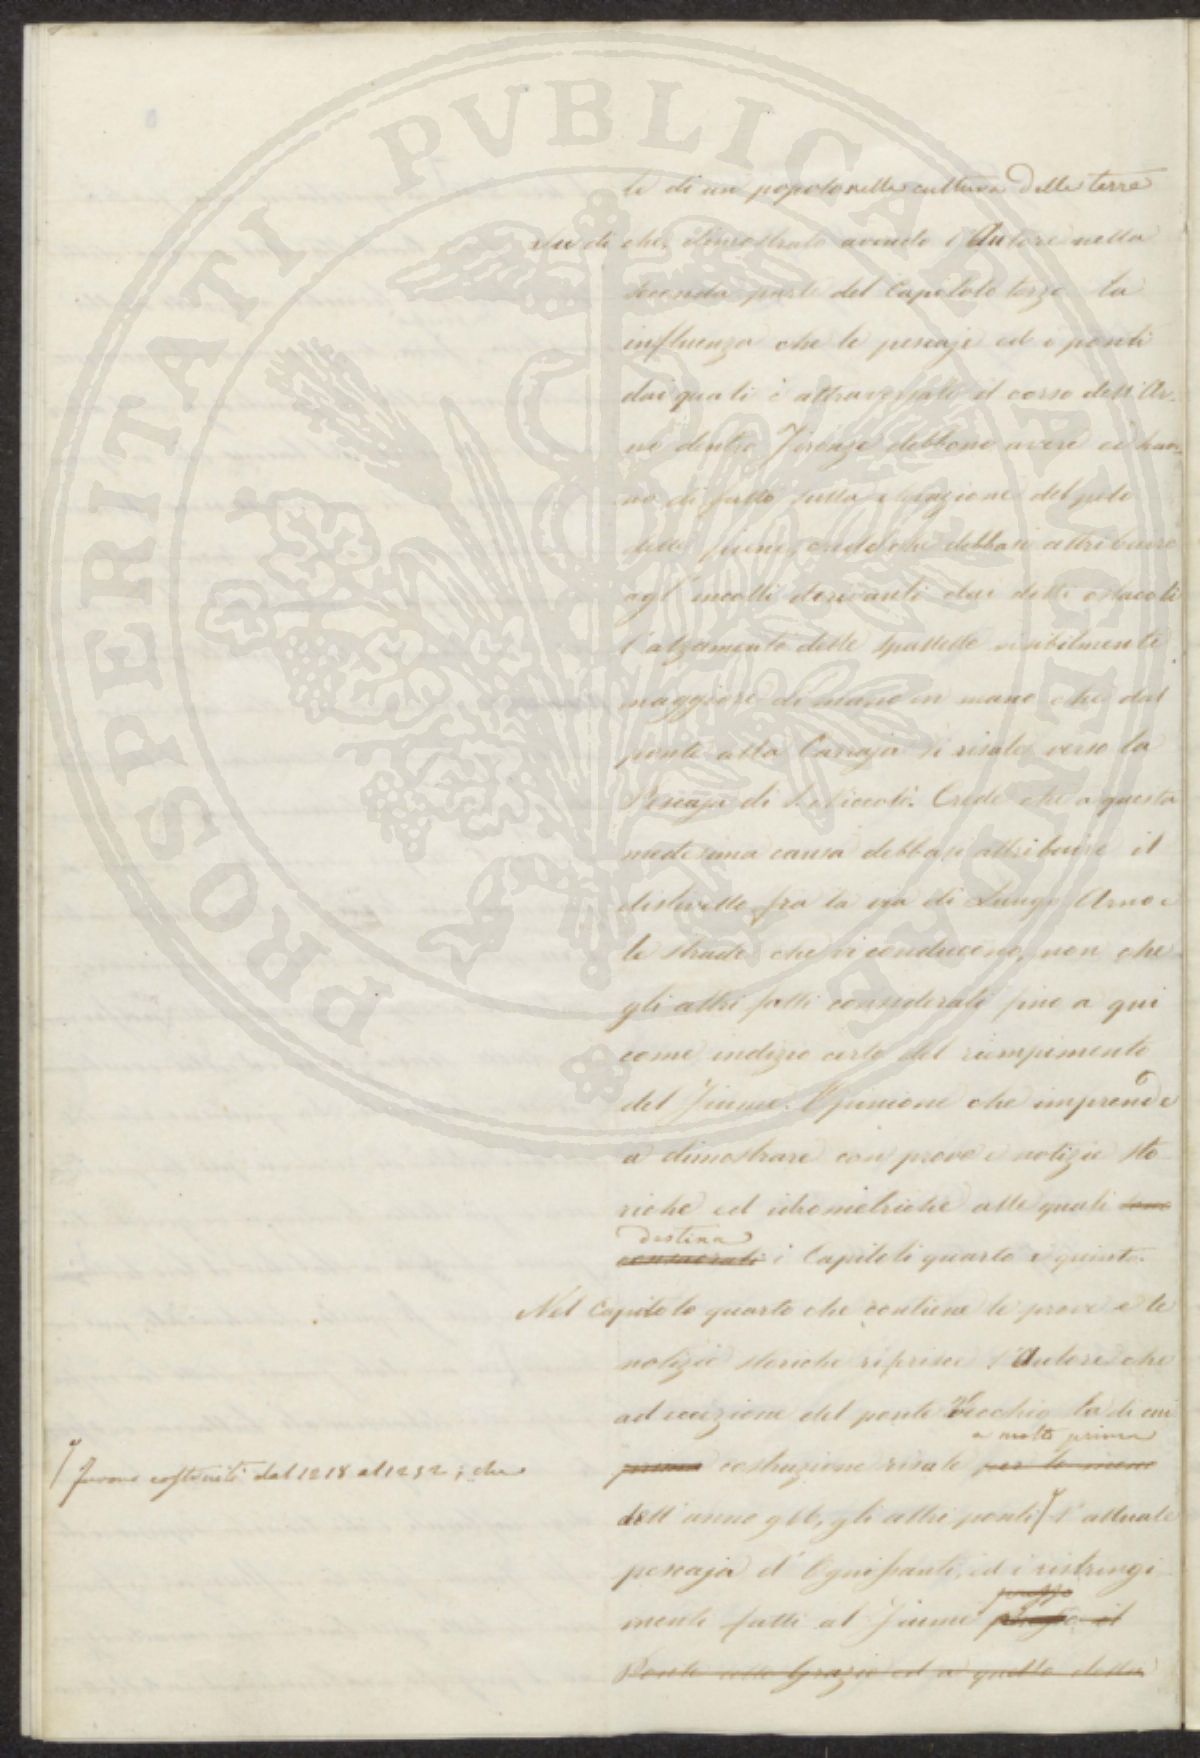 PROSPERITATI PVBLICAE AVGENDAE
le di un popolo nella cultura delle terre
che, dimostrato avendo l'Autore nella
seconda parte del Capitolo terzo la
influenza che le pescaje ed i ponti
dai quali è attraversato il corso dell'Ar-
no dentro Firenze debbono avere ed han-
no di fatto sulla elevazione del pelo
delle piene, crede che debbasi attribuire
agl'incolli derivanti dai detti ostacoli
l'alzamento delle spallette visibilmente
maggiore di mano in mano che dal
ponte alla Carraja si risale verso la
Pescaja di S. Niccolò. Crede che a questa
medesima causa debbasi attribuire il
dislivello fra la via di Lung'Arno e
le strade che vi conducono, non che
gli altri fatti considerati fino a qui
come indizio certo del riempimento
del Fiume. Opinione che imprende
a dimostrare con prove e notizie sto
riche ed idrometriche alle quali sono
destina
consacrati i Capitoli quarto e quinto.
Nel Capitolo quarto che contiene le prove e le
notizie storiche riferisce l'Autore che
ad eccezione del ponte vecchio la di cui
a molto prima
prima costruzione risale per lo meno
furono costruiti dal 1218 al 1252; che
dell'anno 966, gli altri ponti l'attuale
pescaja d'Ognissanti, ed i ristringi
menti fatti al Fiume presso il
Ponte alle Grazie ed a quello della